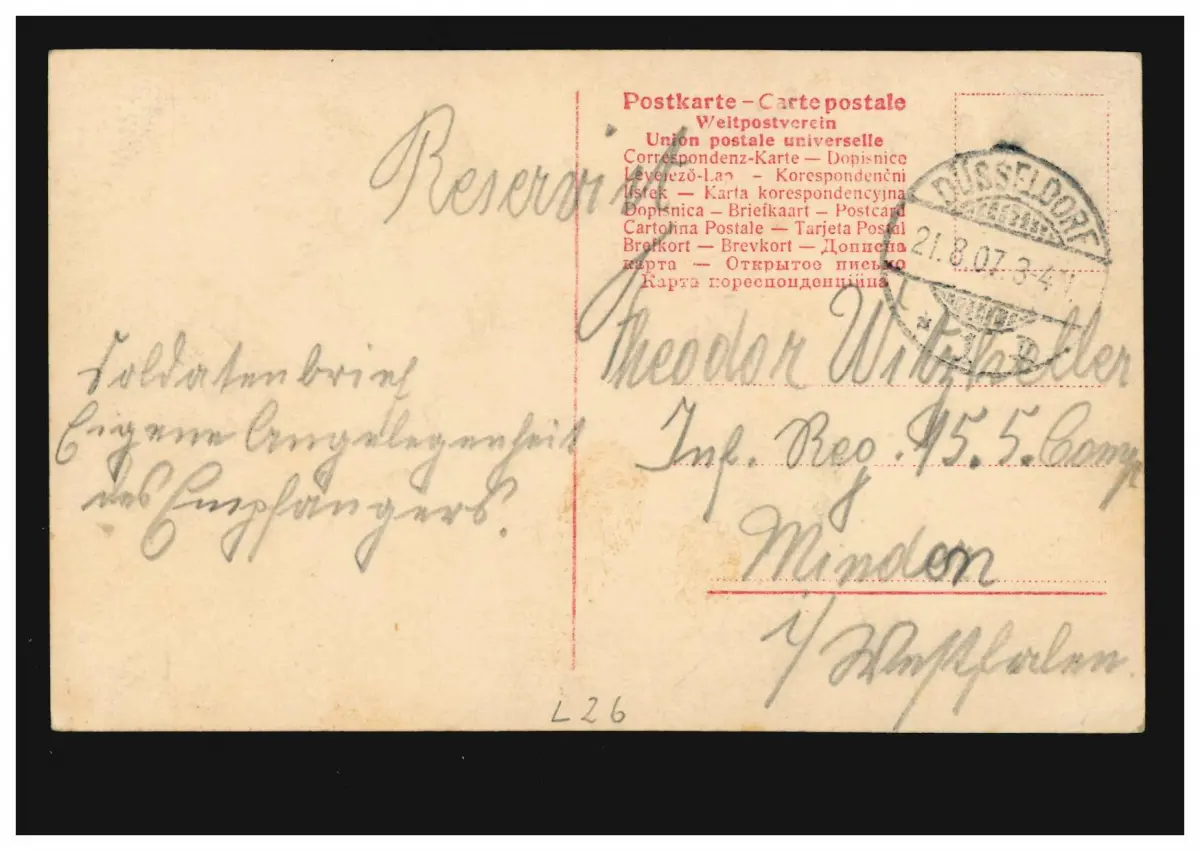 Postkarte – Carte postale
Weltpostverein
Union postale universelle
Correspondenz-Karte — Dopisnice
Levelező-Lap – Korespondenční
lístek — Karta korespondencyjna
Dopisnica – Briefkaart – Postcard
Cartolina Postale – Tarjeta Postal
Brefkort — Brevkort — Дописна
карта — Открытое письмо
Карта кореспонденційна
DÜSSELDORF
21.8.07. 3-4 N.
* 1
Reservist
Theodor
Inf. Reg. 15. 5. Comp
Minden
i/ Westfalen.
Soldatenbrief
Eigene Angelegenheit
des Empfängers.
L26